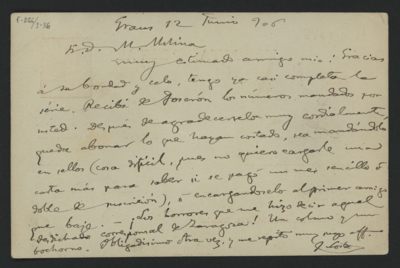 Graus 12 Junio 906
Sr. D. M. Molina
muy estimado amigo mío: Gracias
á su bondad y celo, tengo ya casi completa la
série. Recibí de los números mandados por
usted. Después de agradecérselo muy cordialmente,
puede abonar lo que hayan costado, sea mandándolo
en sellos (cosa difícil, pues no quiero cargarle una
carta más para saber si se pagó un mes sencillo ó
doble de), ó encargándoselo al primer amigo
que baje. — ¡Los horrores que me hizo decir aquel
desdichado corresponsal de Zaragoza! Un colmo y un
bochorno. Obligadísimo otra vez, y me repito muy suyo aff.
J. Costa